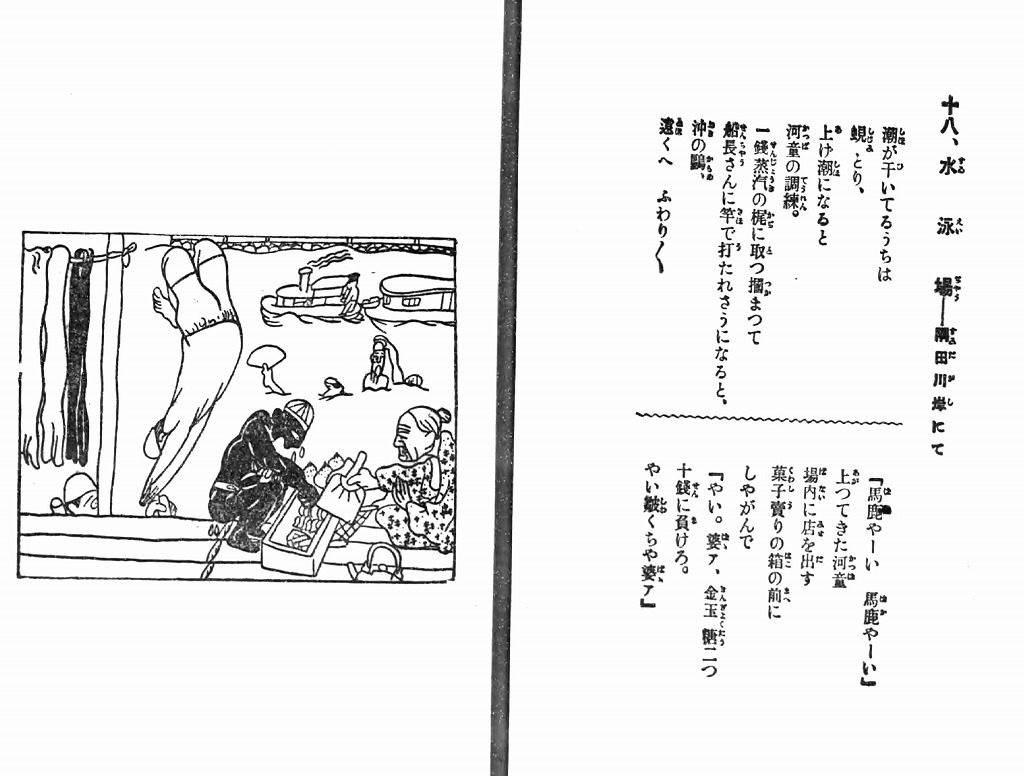 十八、水泳場――隅田川岸にて
潮が干いてるうちは
蜆、とり、
上げ潮になると
河童の調練。
一錢蒸汽の梶に取つ摑まつて
船長さんに竿で打たれさうになると、
沖の鷗、
遠くへ　ふわり〳〵
『馬鹿やーい　馬鹿やーい』
上つてきた河童
場内に店を出す
菓子賣りの箱の前に
しやがんで
『やい。婆ァ、金玉糖二つ
十錢に負けろ。
やい皺くちや婆ァ』